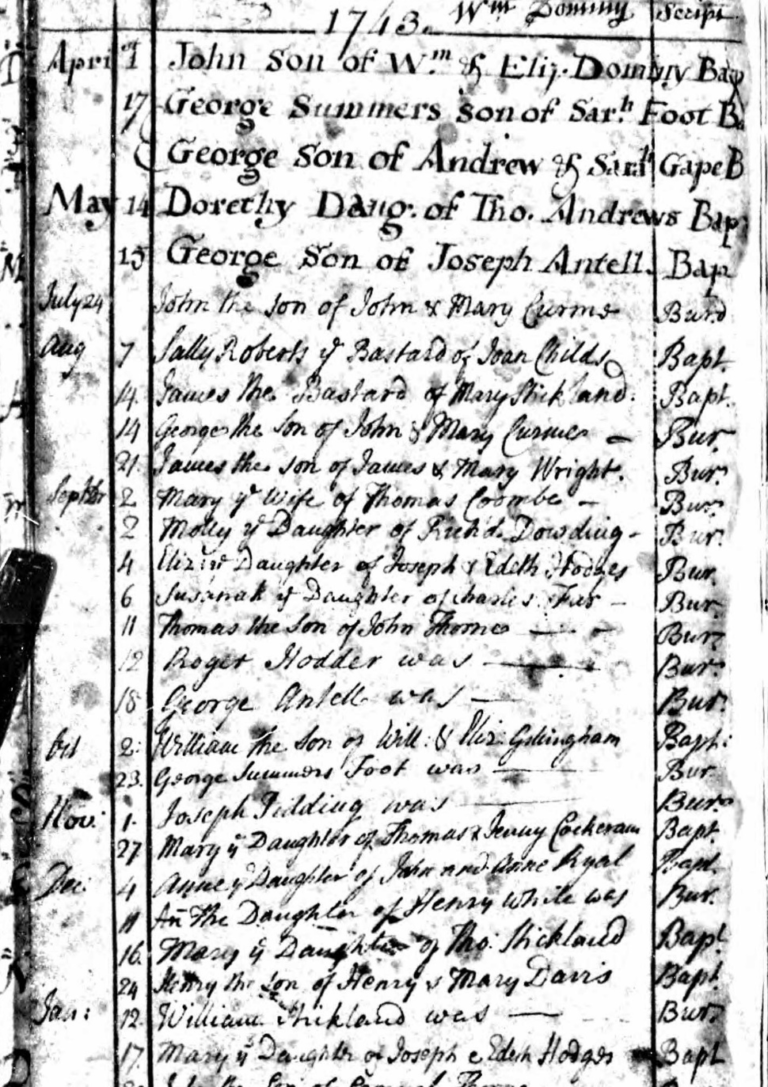 1743. Wm Dominy Script
April 1 John Son of W.m & Eliz. Dominy Bap
17 George Summers Son of Sar.h Foot B
George Son of Andrew & Sarah Gape B
May 14 Dorethy Daug. of Tho. Andrews Bap
15 George Son of Joseph Antell. Bap
July 24 John the Son of John & Mary Curme Burd
Aug 7 Sally Roberts ye Bastard of Joan Childs Bapt.
14. James the Bastard of Mary Stickland. Bapt.
14 George the Son of John & Mary Curme Bur.
21. James the Son of James & Mary Wright. Bur.
Septbr 2 Mary ye Wife of Thomas Coombe Bur.
2 Molly ye Daughter of Richd. Dowding Bur.
4 Eliz ye Daughter of Joseph & Edeth Hodges Bur.
6 Susanah ye Daughter of Charles Bur.
11 Thomas the Son of John Thorne Bur.
12 Roger Hodder was Bur.
18 George Antell was Bur.
Oct 2. William the Son of Will: & Eliz: Gillingham Bapt:
23. George Summers Foot was Bur.
Nov: 1. Joseph Pidding was Bur.
27 Mary ye Daughter of Thomas & Jenny Cockeram Bapt.
Dec: 4 Anne ye Daughter of John and Anne Ryal Bapt.
11 An The Daughter of Henry White was Bur.
16. Mary ye Daughter of Tho: Stickland Bapt
24 Henry the Son of Henry & Mary Davis Bapt.
Jan: 12. William Stickland was Bur.
17. Mary ye Daughter of Joseph & Edeth Hodges Bapt
the Son of Thorne